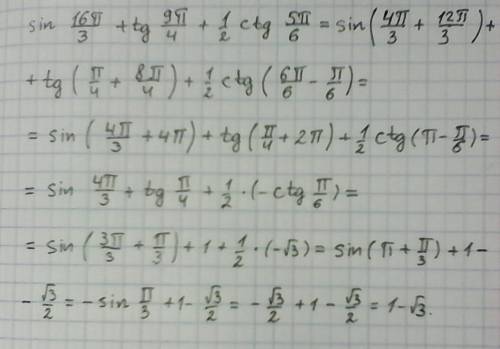 sin 16π/3 + tg 9π/4 + 1/2 ctg 5π/6 = sin(4π/3 + 12π/3) +
+ tg(π/4 + 8π/4) + 1/2 ctg(6π/6 - π/6) =
= sin(4π/3 + 4π) + tg(π/4 + 2π) + 1/2 ctg(π - π/6) =
= sin 4π/3 + tg π/4 + 1/2 · (-ctg π/6) =
= sin(3π/3 + π/3) + 1 + 1/2 · (-√3) = sin(π + π/3) + 1 -
- √3/2 = - sin π/3 + 1 - √3/2 = - √3/2 + 1 - √3/2 = 1 - √3.